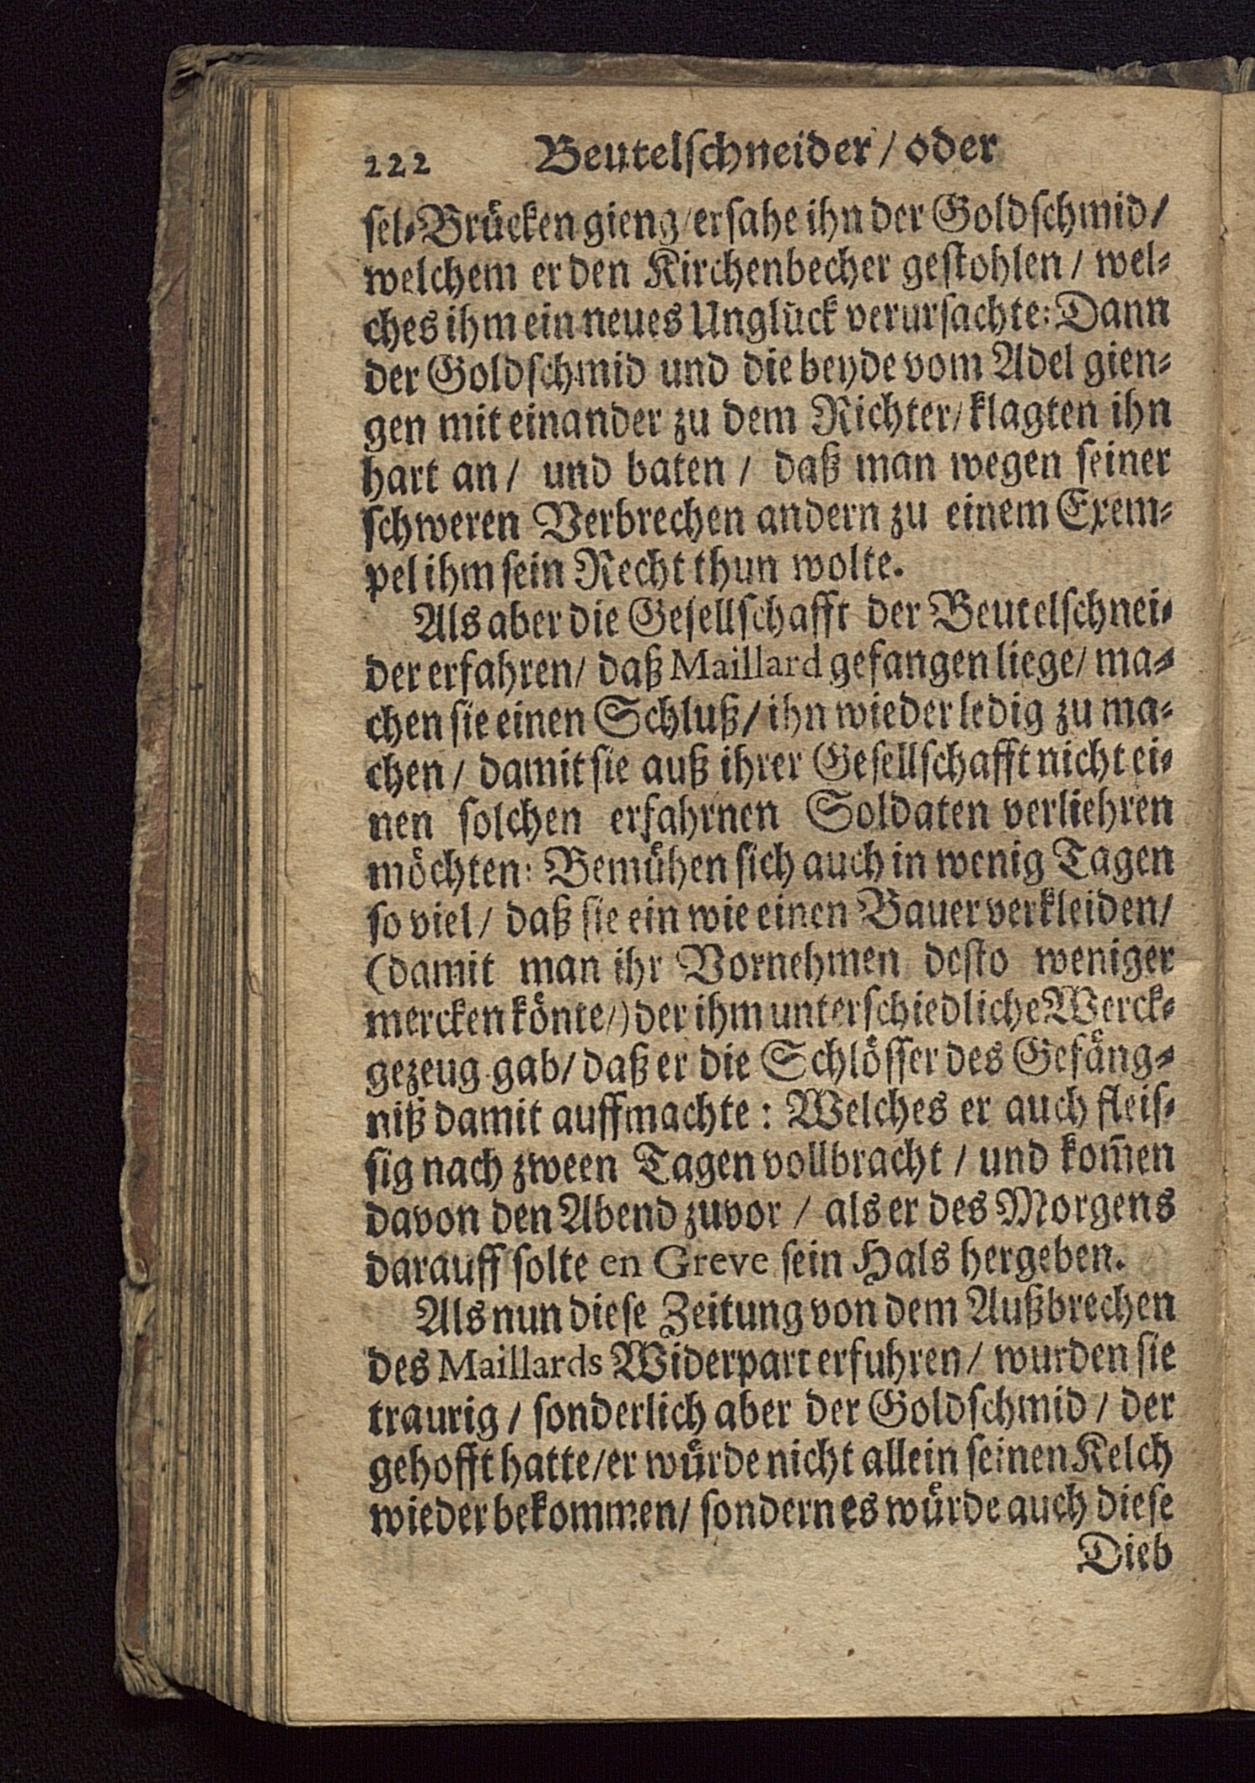 222 Beutelschneider / oder
sel-Brücken gieng / ersahe ihn der Goldschmid /
welchem er den Kirchenbecher gestohlen / wel-
ches ihm ein neues Unglück verursachte: Dann
der Goldschmid und die beyde vom Adel gien-
gen mit einander zu dem Richter / klagten ihn
hart an / und baten / daß man wegen seiner
schweren Verbrechen andern zu einem Exem-
pel ihm sein Recht thun wolte.
Als aber die Gesellschafft der Beutelschnei-
der erfahren / daß Maillard gefangen liege / ma-
chen sie einen Schluß / ihn wieder ledig zu ma-
chen / damit sie auß ihrer Gesellschafft nicht ei-
nen solchen erfahrnen Soldaten verliehren
möchten: Bemühen sich auch in wenig Tagen
so viel / daß sie ein wie einen Bauer verkleiden /
(damit man ihr Vornehmen desto weniger
mercken könte /) der ihm unterschiedliche Werck-
gezeug gab / daß er die Schlösser des Gefäng-
niß damit auffmachte: Welches er auch fleis-
sig nach zween Tagen vollbracht / und kom̃en
davon den Abend zuvor / als er des Morgens
darauff solte en Greve sein Hals hergeben.
Als nun diese Zeitung von dem Außbrechen
des Maillards Widerpart erfuhren / wurden sie
traurig / sonderlich aber der Goldschmid / der
gehofft hatte / er würde nicht allein seinen Kelch
wieder bekommen / sondern es würde auch diese
Dieb